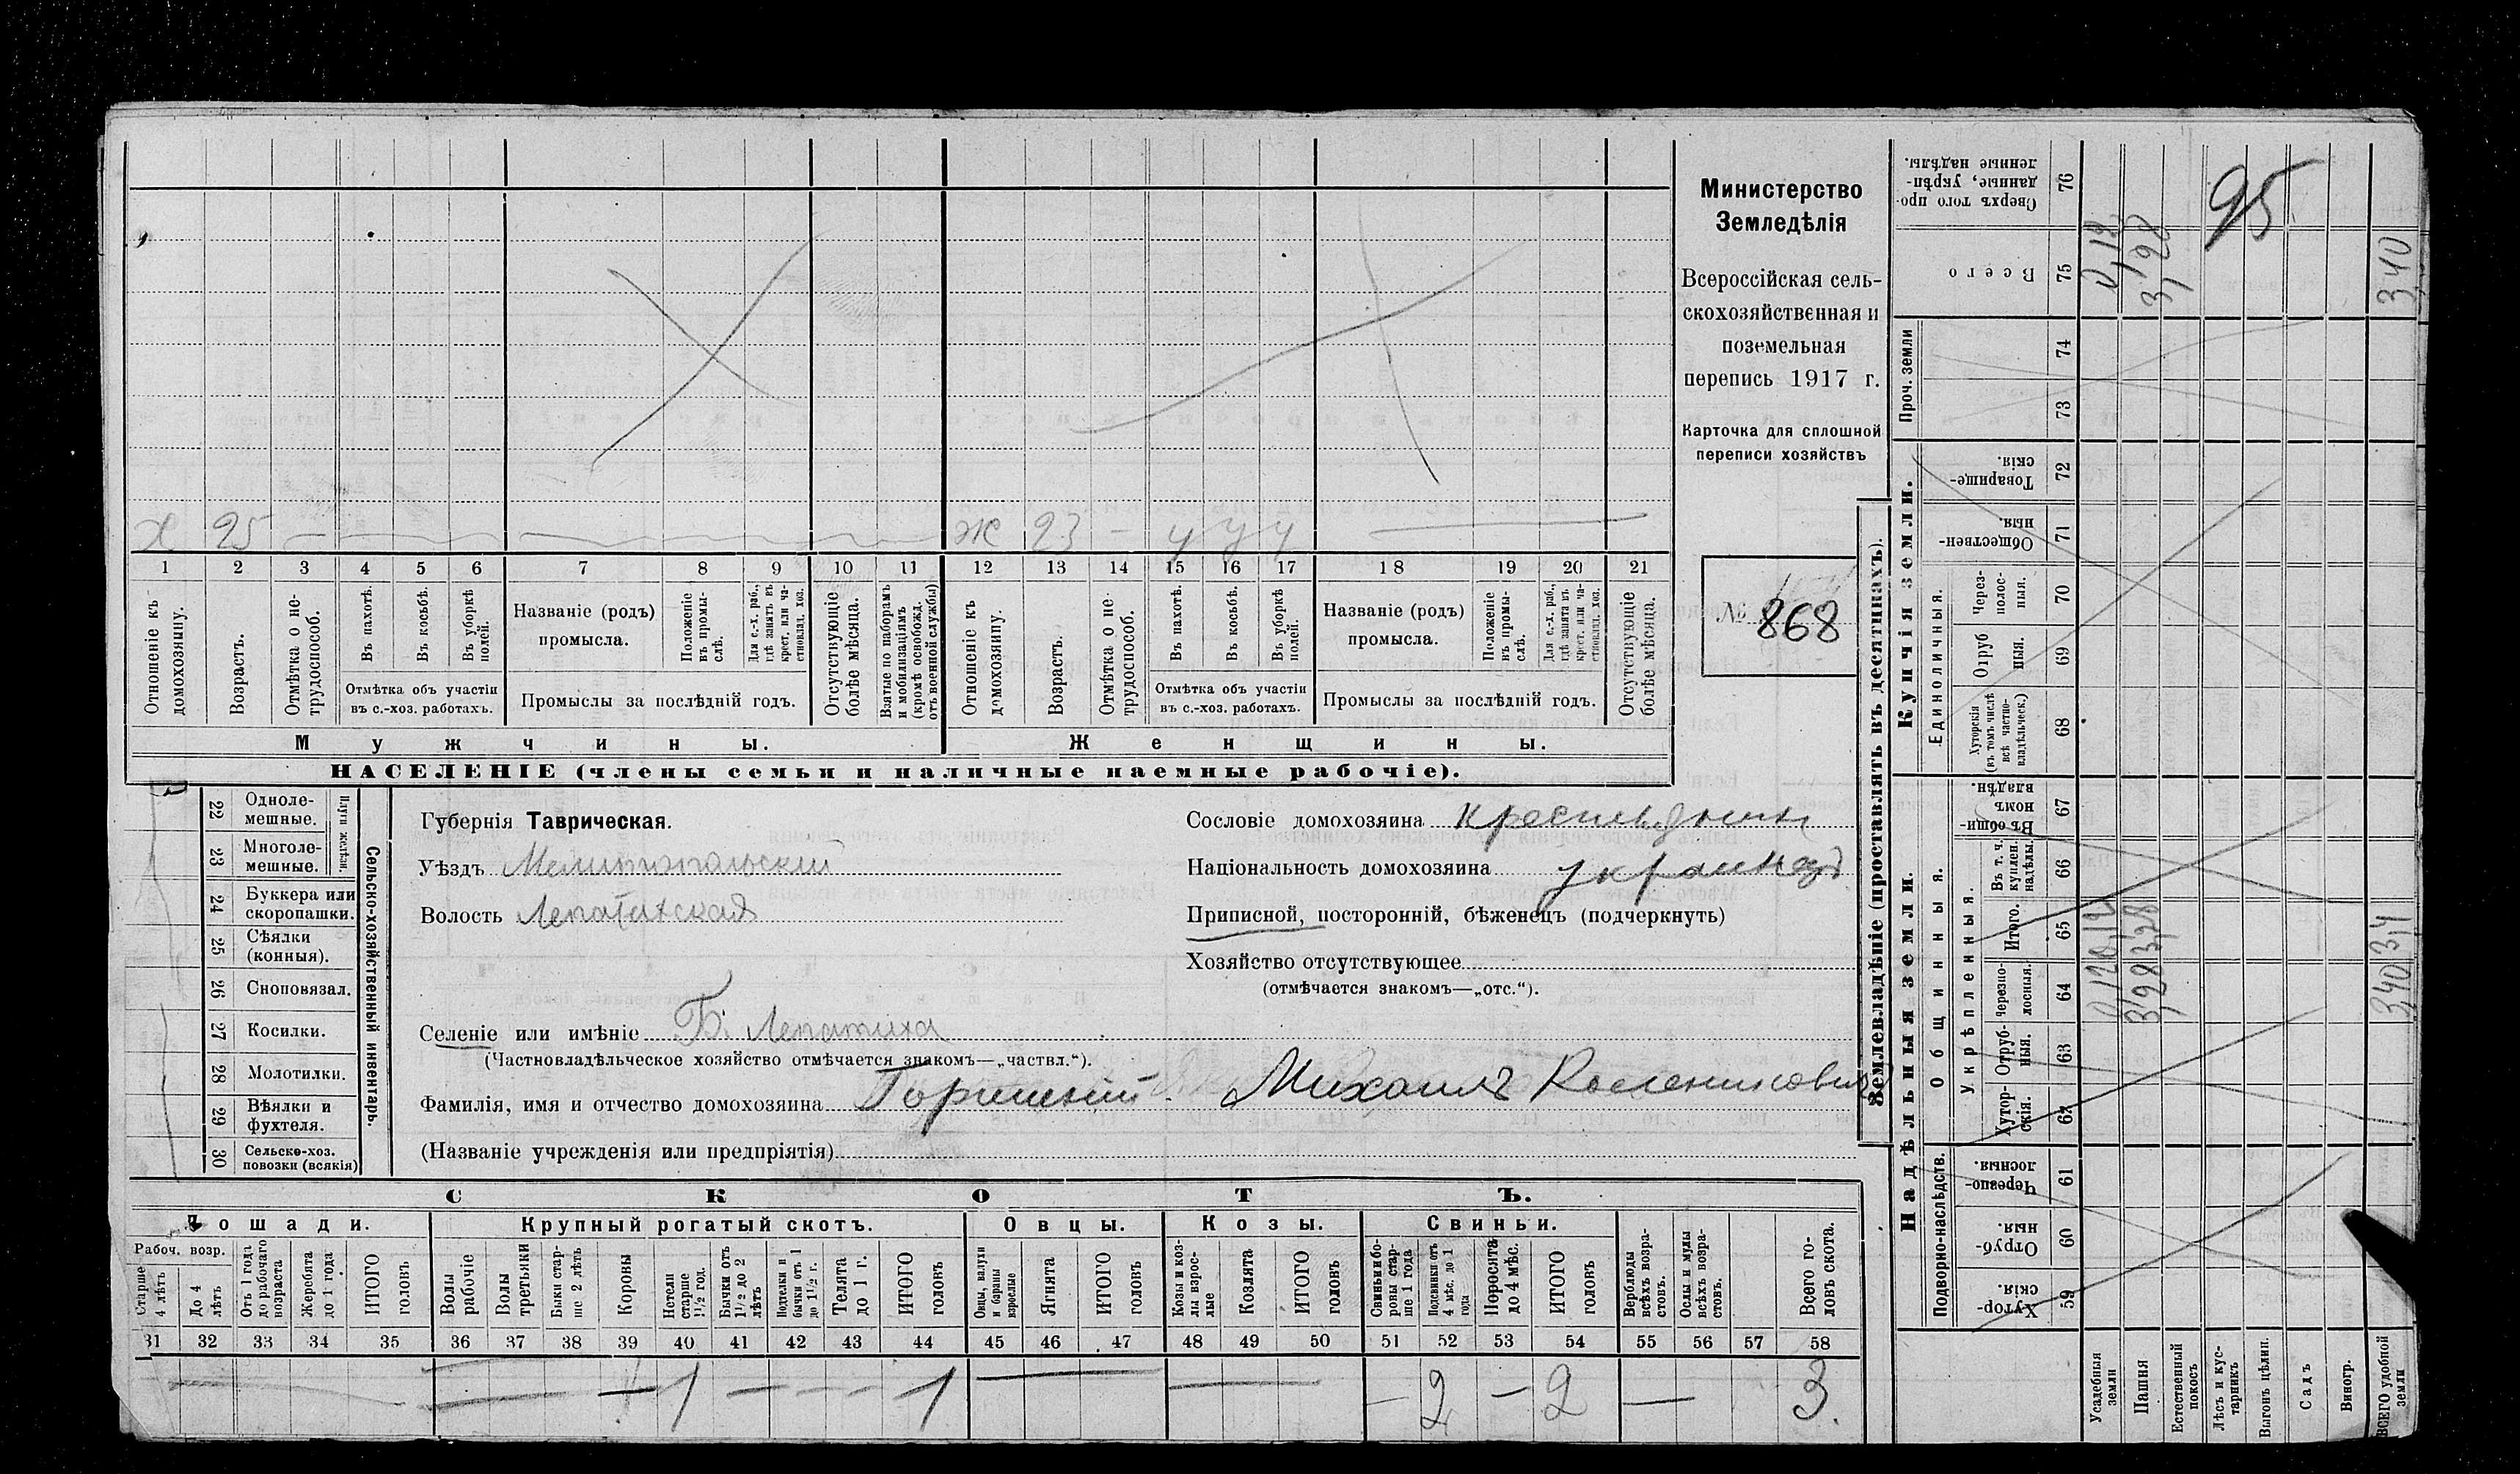 Министерство
Земледѣлія
Всероссійская сель-
скохозяйственная и
поземельная
перепись 1917 г.
Карточка для сплошной
переписи хозяйствъ
№ 868
х 25 ж 23 – у у у
1 2 3 4 5 6 7 8 9 10 11 12 13 14 15 16 17 18 19 20 21
Отношеніе къ домохозяину.
Возрастъ.
Отмѣтка о не-трудоспособ.
Въ пахотѣ.
Въ косьбѣ.
Въ уборкѣ полей.
Отмѣтка объ участіи въ с.-хоз. работахъ.
Названіе (родъ) промысла.
Положеніе въ промы-слѣ.
Для с.-х. раб., гдѣ занятъ въ крест. или ча-стновлад. хоз.
Промыслы за послѣдній годъ.
Отсутствующіе болѣе мѣсяца.
Взятые по наборамъ и мобилизаціямъ (кромѣ освобожд. отъ военной службы)
Отношеніе къ домохозяину.
Возрастъ.
Отмѣтка о не-трудоспособ.
Въ пахотѣ.
Въ косьбѣ.
Въ уборкѣ полей.
Отмѣтка объ участіи въ с.-хоз. работахъ.
Названіе (родъ) промысла.
Положеніе въ промы-слѣ.
Для с.-х. раб., гдѣ занята въ крест. или ча-стновлад. хоз.
Промыслы за послѣдній годъ.
Отсутствующіе болѣе мѣсяца.
Мужчины. Женщины.
НАСЕЛЕНІЕ (члены семьи и наличные наемные рабочіе).
22 Одноле-мешные.
23 Многоле-мешные.
Плуги желѣзн.
24 Буккера или скоропашки.
25 Сѣялки (конныя).
26 Сноповязал.
27 Косилки.
28 Молотилки.
29 Вѣялки и фухтеля.
30 Сельско-хоз. повозки (всякія)
Сельско-хозяйственный инвентарь.
Губернія Таврическая.
Уѣздъ Мелитопольский
Волость Лепатихская
Селеніе или имѣніе Б. Лепатиха
(Частновладѣльческое хозяйство отмѣчается знакомъ—„частвл.“).
Фамилія, имя и отчество домохозяина Михаилъ
(Названіе учрежденія или предпріятія)
Сословіе домохозяина крестьянин
Національность домохозяина украинец
Приписной, посторонній, бѣженецъ (подчеркнуть)
Хозяйство отсутствующее
(отмѣчается знакомъ—„отс.“).
СКОТЪ.
Лошади. Крупный рогатый скотъ. Овцы. Козы. Свиньи.
Рабоч. возр.
Старше 4 лѣтъ
До 4 лѣтъ
Отъ 1 года до рабочаго возраста
Жеребята до 1 года
ИТОГО головъ
Волы рабочіе
Волы третьяки
Быки стар-ше 2 лѣтъ
Коровы
Нетели старше 1½ год.
Бычки отъ 1½ до 2 лѣтъ
Подтелки и бычки отъ 1 до 1½ г.
Телята до 1 г.
ИТОГО головъ
Овцы, валухи и бараны взрослые
Ягнята
ИТОГО головъ
Козы и коз-лы взрос-лые
Козлята
ИТОГО головъ
Свиньи и бо-ровы стар-ше 1 года
Подсвинки отъ 4 мѣс. до 1 года
Поросята до 4 мѣс.
ИТОГО головъ
Верблюды всѣхъ возра-стовъ.
Ослы и мулы всѣхъ возра-стовъ.
Всего го-ловъ скота.
31 32 33 34 35 36 37 38 39 40 41 42 43 44 45 46 47 48 49 50 51 52 53 54 55 56 57 58
– – – 1 – – – 1 – – – 2 – 2 – 3.
Землевладѣніе (проставлять въ десятинахъ).
Надѣльныя земли.
Купчія земли.
Проч. земли
Подворно-наслѣдств.
Общинныя.
Укрѣпленныя.
Единоличныя.
Хутор-скія. 59
Отруб-ныя. 60
Черезпо-лосныя. 61
Хутор-скія. 62
Отруб-ныя. 63
Черезпо-лосныя. 64
Итого. 65
Въ т. ч. куплен. надѣлы. 66
Въ общи-номъ владѣн. 67
Хуторскія (въ томъ числѣ всѣ частно-владѣльческ.) 68
Отруб ныя. 69
Через-полос-ныя. 70
Обществен-ныя. 71
Товарище-скія. 72
73
74
Всего 75
Сверхъ того про-данные, укрѣп-ленные надѣлы. 76
Усадебныя земли
Пашня
Естественный покосъ
Лѣсъ и кус-тарникъ
Выгонъ цѣлин.
Садъ
Виногр.
ВСЕГО удобной земли
0,12 0,12 0,12
3,28 3,28 3,28
3,40 3,4 3,40
95